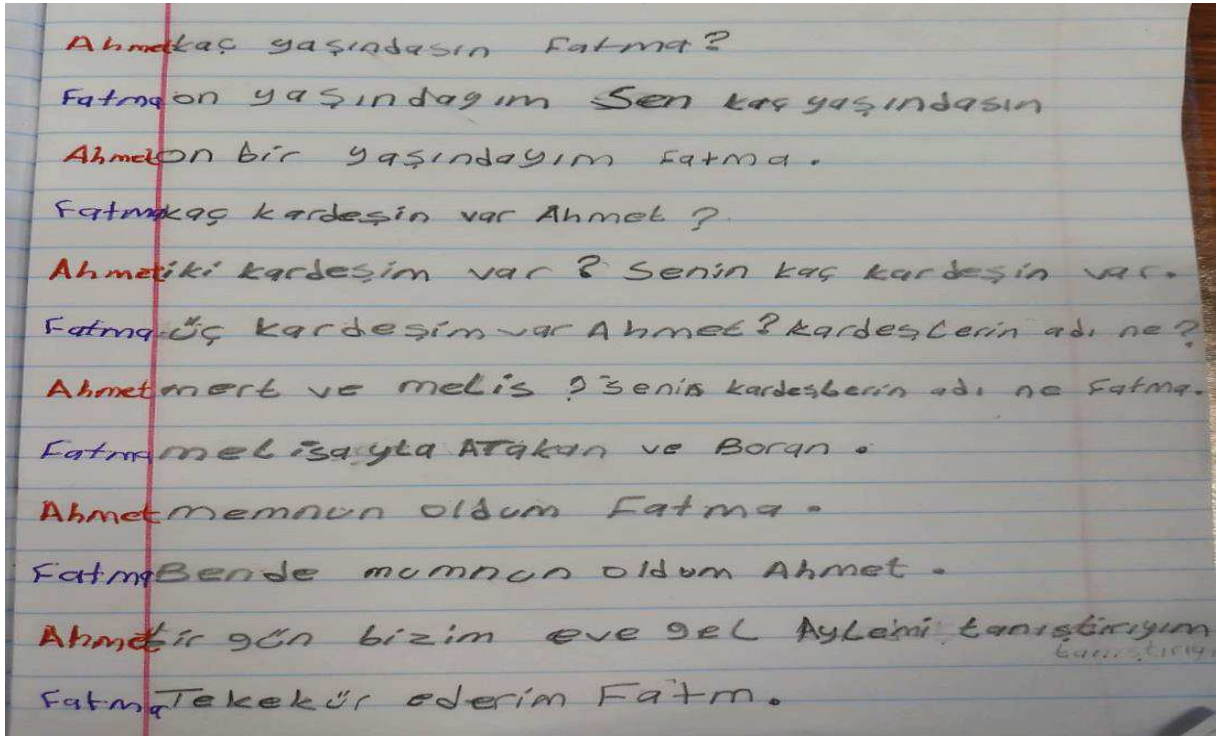 Ahmet kaç yaşındasın Fatma?
Fatma on yaşındayım Sen kaç yaşındasın
Ahmet on bir yaşındayım Fatma.
Fatma kaç kardeşin var Ahmet?
Ahmet iki kardeşim var? Senin kaç kardeşin var.
Fatma üç kardeşim var Ahmet? kardeşlerin adı ne?
Ahmet mert ve melis? senin kardeşlerin adı ne Fatma.
Fatma melisayla Atakan ve Boran.
Ahmet memnun oldum Fatma.
Fatma Bende mumnun oldum Ahmet.
Ahmet bir gün bizim eve gel Aylemi tanıştırıyım
Fatma Tekekür ederim Fatm.